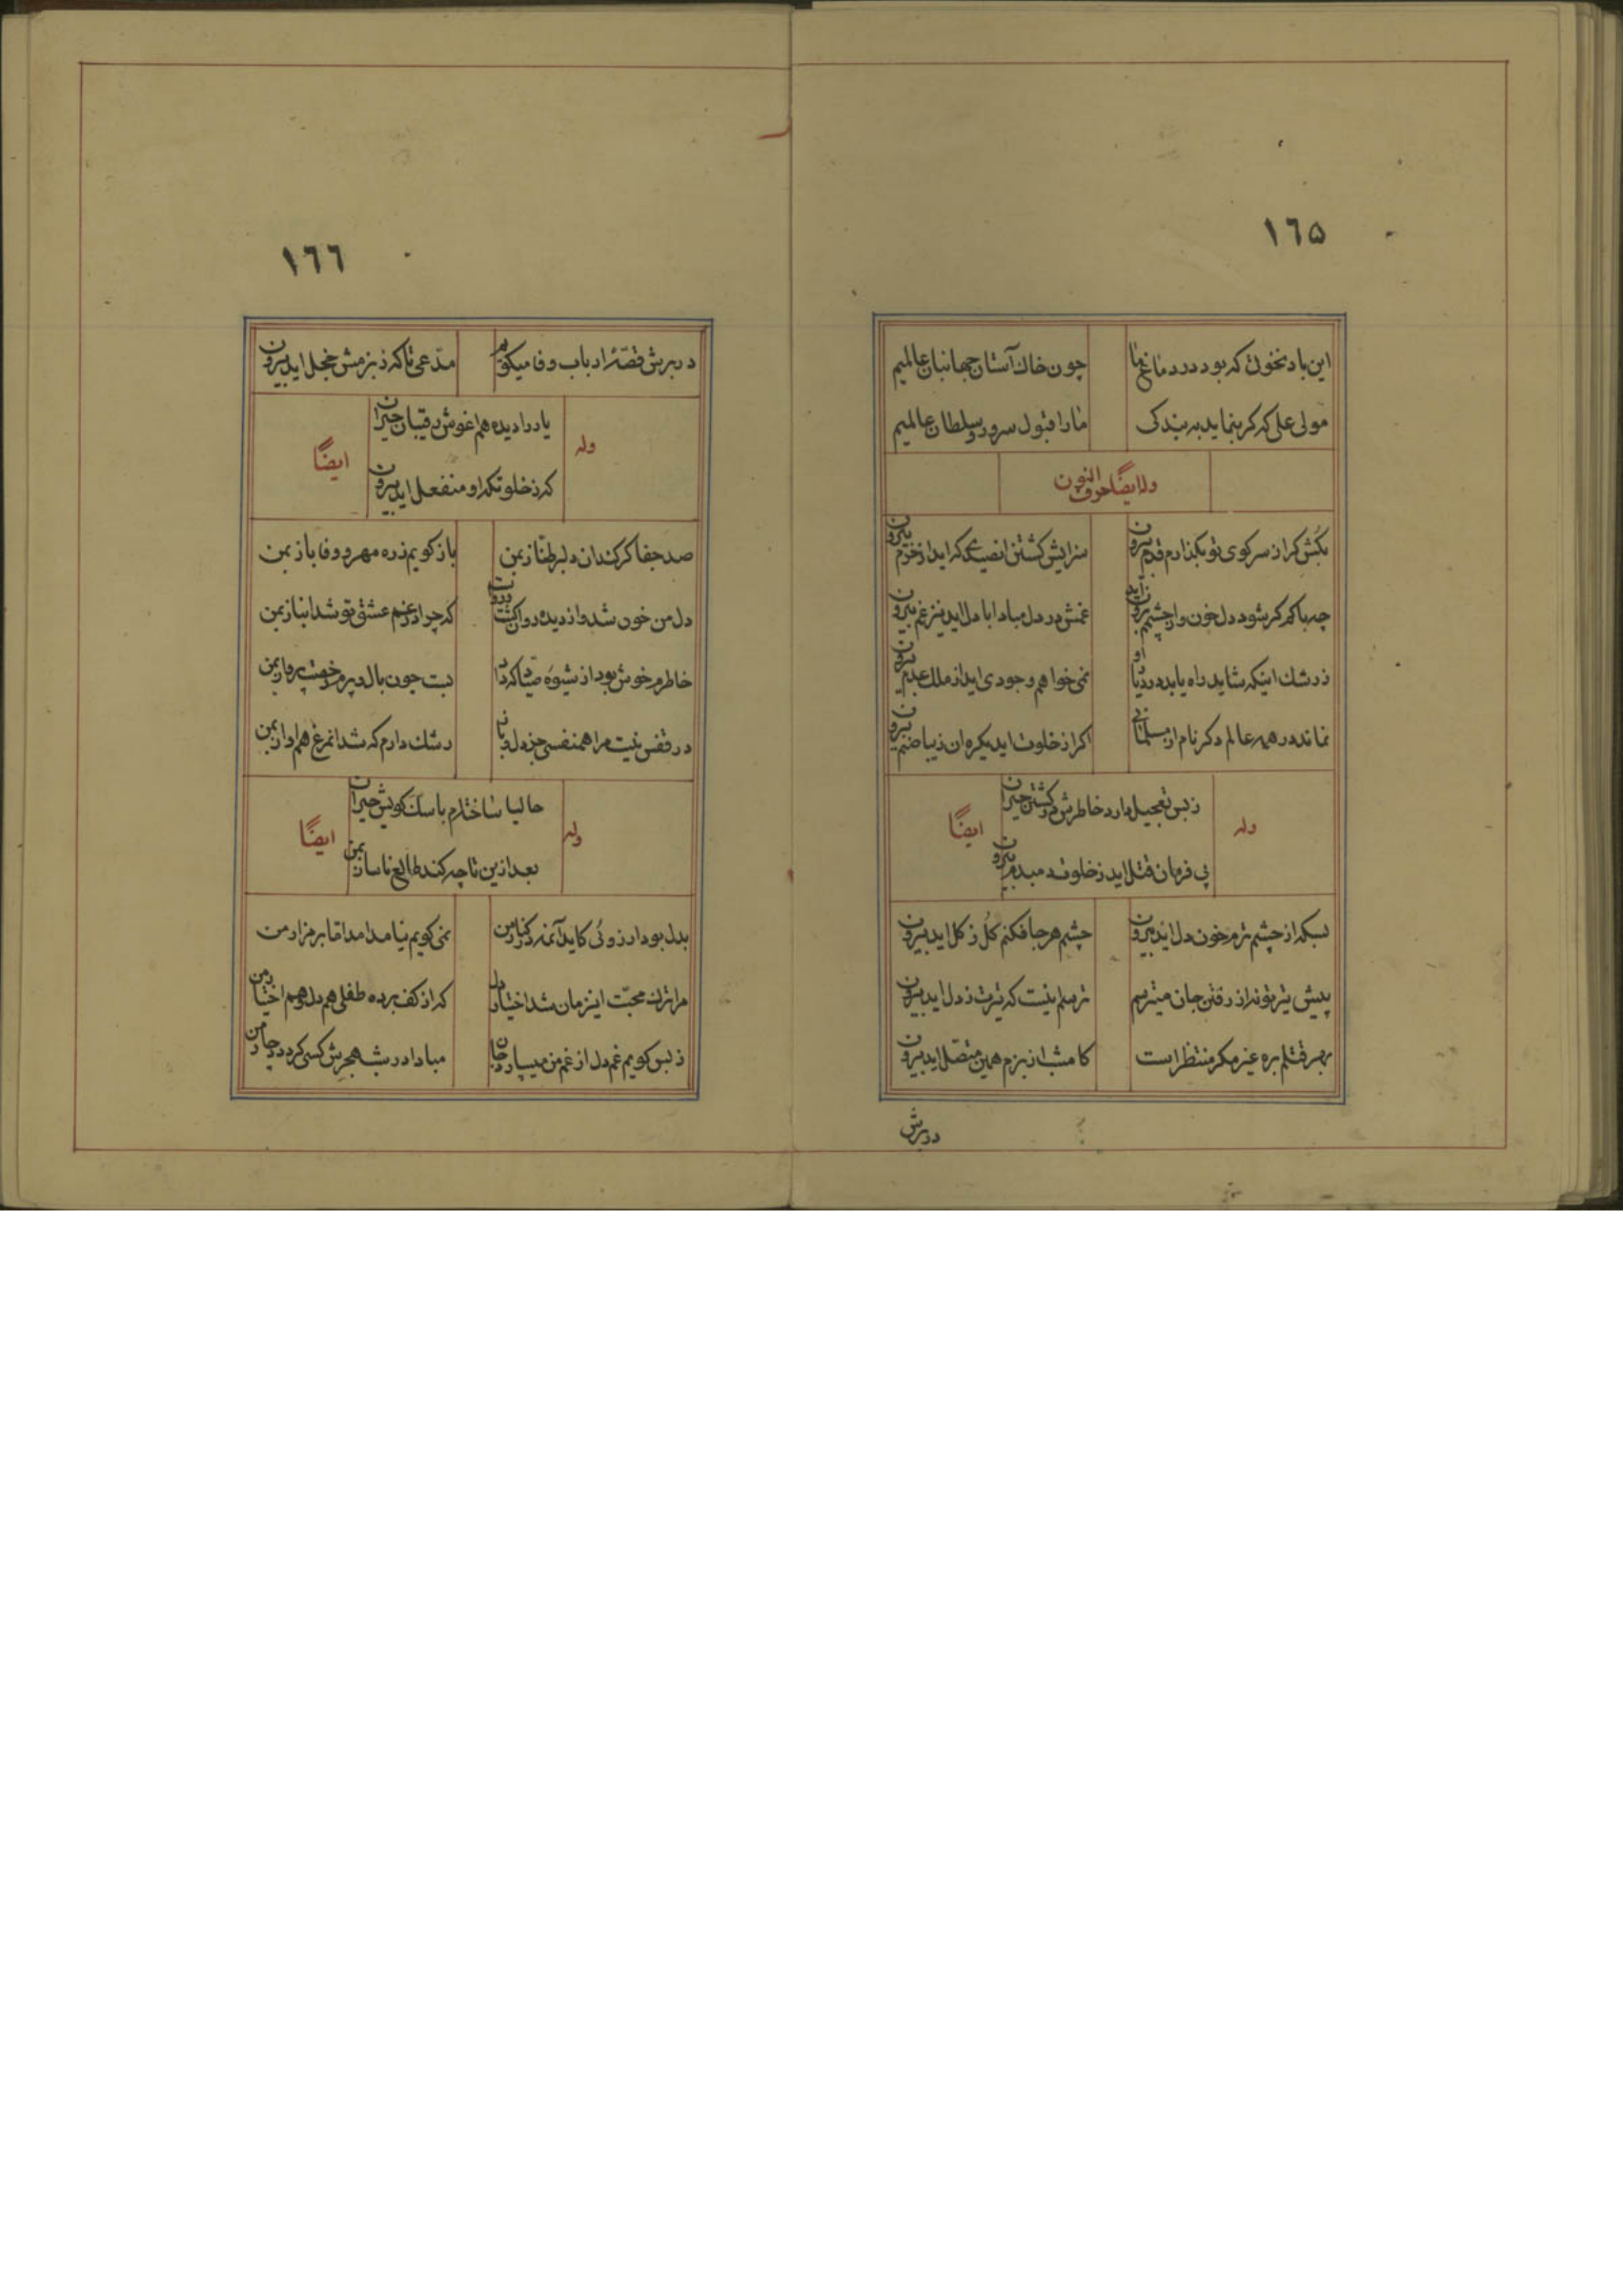 ١٦۵
این باد نخوتی که بود در دماغ ما
چون خاك آستان جهانبان عالمیم
مولی علی که کر بنماید به بندکی
ما را قبول سرور و سلطان عالمیم
وله ایضًا حرف النون
بکُش کر از سر کوی تو بکذارم قدم بیرون
سزایش کشتن
چه باکم کر شود دل خون و از چشمم
غمش در دل مبادا با دل اید نیز غم بیرون
ز رشك اینکه شاید راه یابد در دیار او
نمی خواهم وجودی اید از ملك عدم بیرون
نمانده در همه عالم دکر نام از مسلمانی
اکر از خلوت اید یکره ان زیبا صنم بیرون
وله
ز بس تعجیل دارد خاطرش در کشتن حیران
پی فرمان قتل اید ز خلوت دمبدم بیرون
ایضًا
بسکه از چشم ترم خون دل اید بیرون
چشم هر جا فکنم کُل ز کل اید بیرون
پیش تیر تو نه از رفتن جان میترسم
ترسم اینست که تیرت ز دل اید بیرون
بهر قتلم بره غیر مکر منتظر است
کامشب از بزم همین متّصل اید بیرون
در برش
١٦٦
در برش قصّهٔ ارباب وفا میکویم
مدّعی تا که ز بزمش خجل اید بیرون
وله
یار را دیده هم اغوش رقیبان حیران
که ز خلوتکه او منفعل اید بیرون
ایضًا
صد جفا کر کند ان دلبر طنّاز بمن
باز کویم ز ره مهر و وفا باز بمن
دل من خون شد و از دیده روان کشت
که چرا در غم عشق تو شد انباز بمن
خاطرم خوش بود از شیوهٔ صیّاد که داد
بست چون بال و پرم رخصت پرواز بمن
در قفس نیست مرا همنفسی جز دل و بان
رشك دارم که شد انمرغ هم اواز بمن
وله
حالیا ساخته ام با سك کویش حیران
بعد ازین تا چه کند طالع ناساز بمن
ایضًا
بدل بود ارزوئی کاید آنمه در کنار من
نمی کویم نیامد امد امّا بر مزار من
مرا ترك محبّت اینزمان شد اختیار دل
که از کف برده طفلی هم دل و هم اختیار من
ز بس کویم غم دل از غم من میسپارد جان
مبادا در شب هجرش کسی کردد دچار من